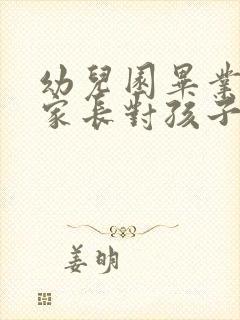 幼兒園畢業
家長對孩子
姜明